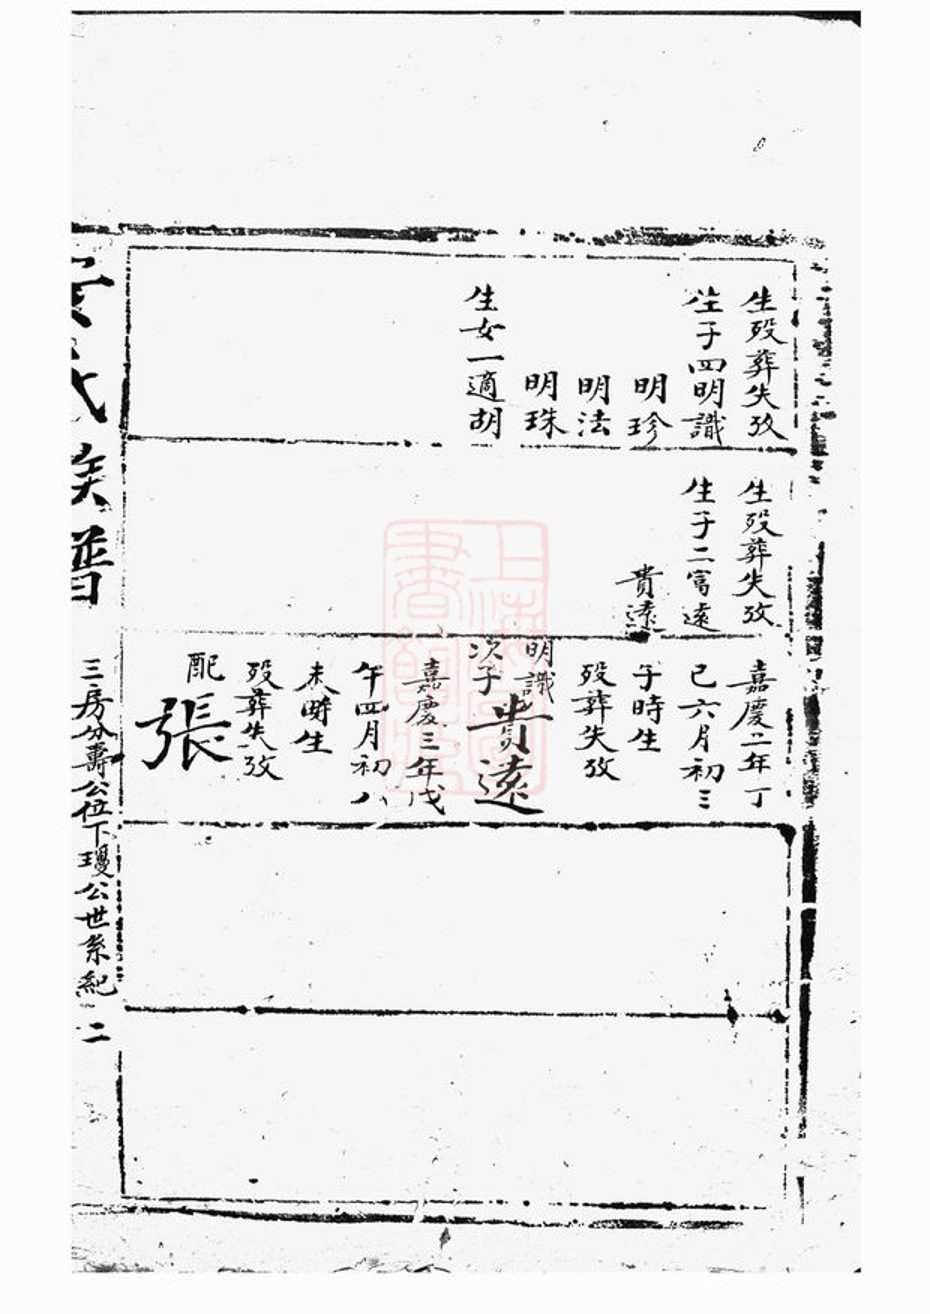 生歿葬失攷
生子四明識
明珍
明法
明珠
生女一適胡
生歿葬失攷
生子二富遠
貴遠
嘉慶二年丁
巳六月初三
子時生
歿葬失攷
明識
次子
貴遠
嘉慶三年戊
午四月初八
未時生
歿葬失攷
配
張
氏族譜
三房分壽公位下璦公世系紀
二
上海圖書館藏書